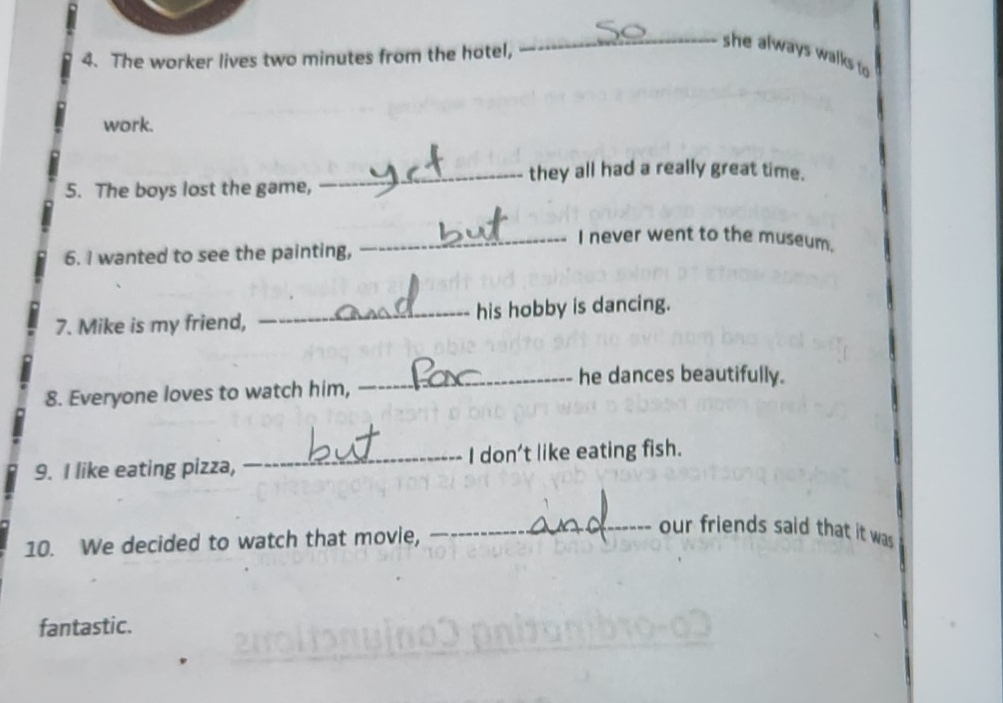 4. The worker lives two minutes from the hotel, so she always walks to
work.
5. The boys lost the game, yet they all had a really great time.
6. I wanted to see the painting, but I never went to the museum.
7. Mike is my friend, and his hobby is dancing.
8. Everyone loves to watch him, For he dances beautifully.
9. I like eating pizza, but I don't like eating fish.
10. We decided to watch that movie, and our friends said that it was
fantastic.
Co-ordinating Conjunctions